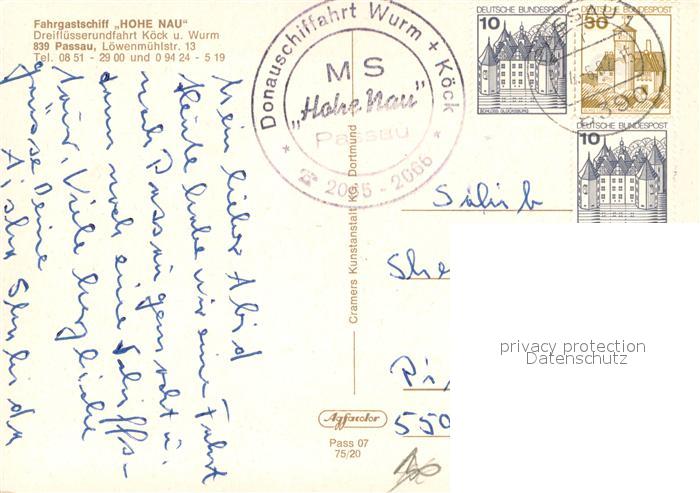 Fahrgastschiff „HOHE NAU"
Dreiflüsserundfahrt Köck u. Wurm
839 Passau, Löwenmühlstr. 13
Tel. 08 51 - 29 00 und 0 94 24 - 5 19
Donauschiffahrt Wurm + Köck
MS
„Hohe Nau"
Passau
☎ 2065 - 2066
10 DEUTSCHE BUNDESPOST
SCHLOSS GLÜCKSBURG
30 DEUTSCHE BUNDESPOST
10 DEUTSCHE BUNDESPOST
Mein lieber Abid
Heute haben wir eine Fahrt
nach Passau gemacht u.
dann noch eine Schiffs-
tour. Viele herzliche
grüsse Deine
Cramers Kunstanstalt KG, Dortmund
Sahib
She
550
Agfacolor
Pass 07
75/20
privacy protection
Datenschutz